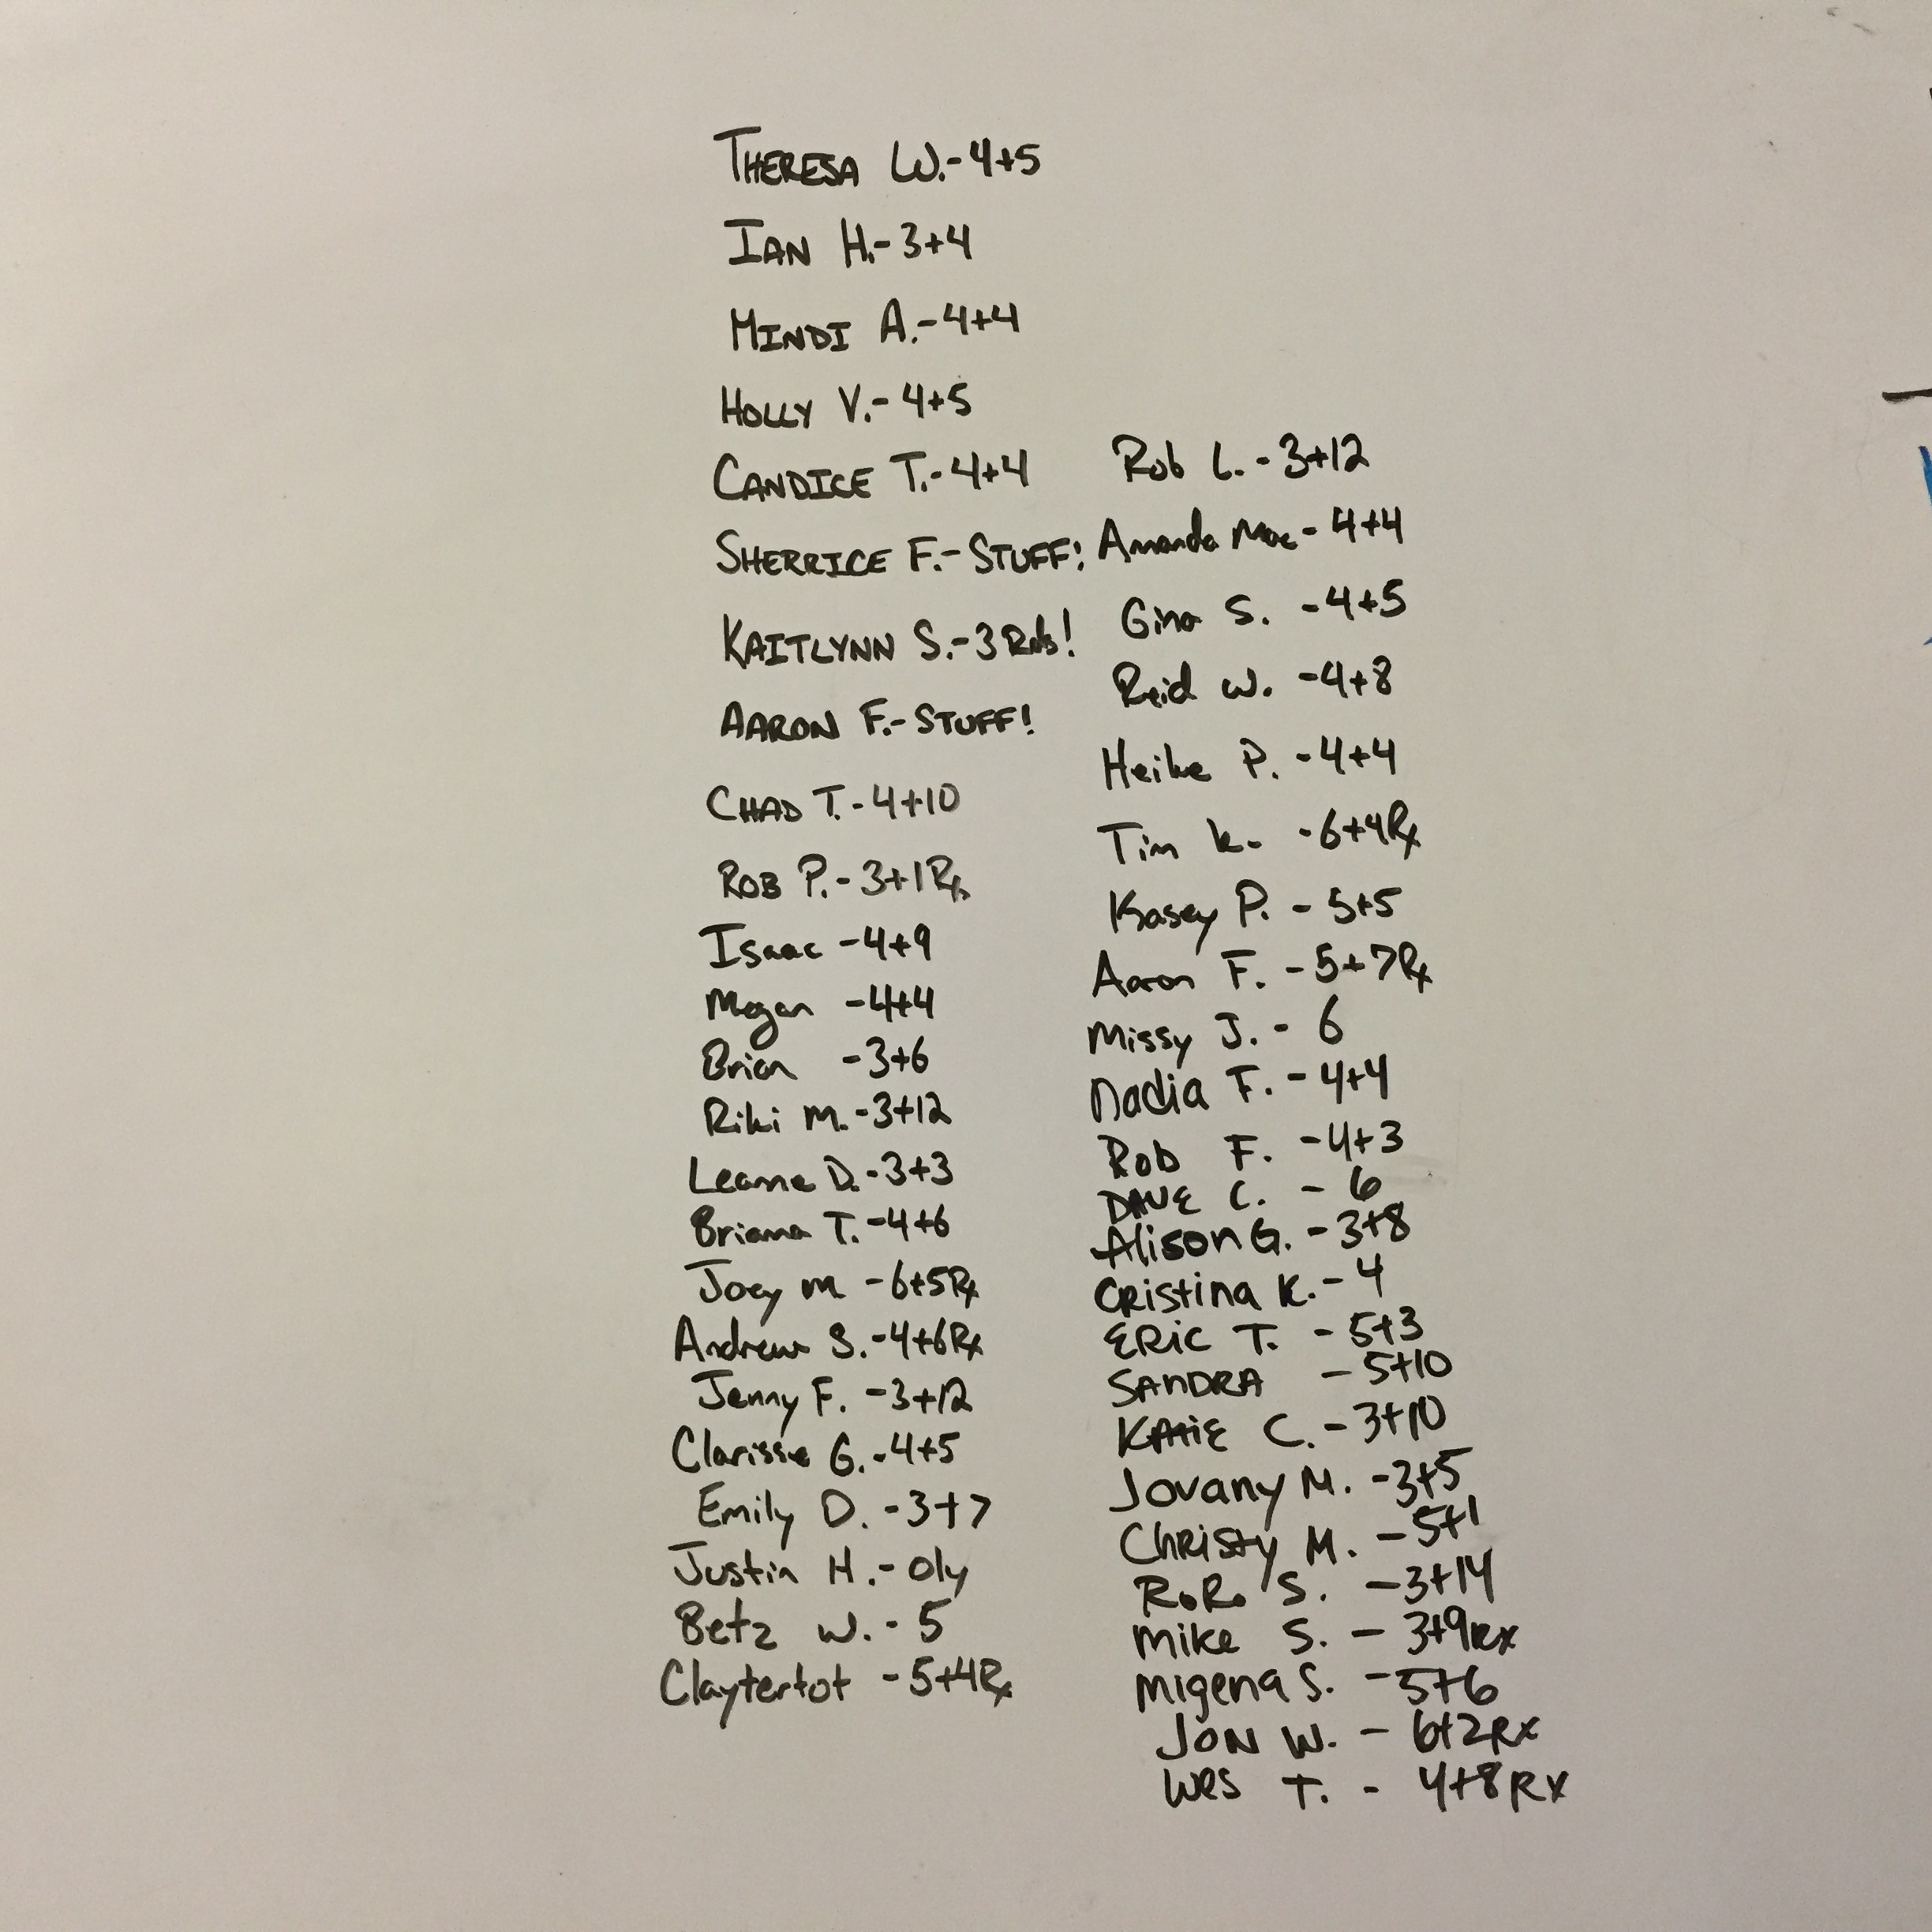 THERESA W.-4+5
IAN H.-3+4
MINDI A.-4+4
HOLLY V.-4+5
CANDICE T.-4+4
SHERRICE F.-STUFF!
KAITLYNN S.-3 Rds!
AARON F.-STUFF!
CHAD T.-4+10
ROB P.-3+1Rx
Isaac -4+9
Megan -4+4
Brian -3+6
Riki M.-3+12
Leanne D.-3+3
Briana T.-4+6
Joey M -6+5Rx
Andrew S.-4+6Rx
Jenny F. -3+12
Clarisse G.-4+5
Emily D. -3+7
Justin H.- Oly
Betz W.- 5
Claytertot -5+4Rx
Rob L. -3+12
Amanda Mae- 4+4
Gina S. -4+5
Reid W. -4+8
Heike P. -4+4
Tim K. -6+4Rx
Kasey P. - 5+5
Aaron F. -5+7Rx
Missy J. - 6
Nadia F. -4+4
Rob F. -4+3
DAVE C. - 6
Alison G. -3+8
CRistina K.- 4
ERiC T. - 5+3
SAnDRA - 5+10
KAtiE C. -3+10
Jovany M. -3+5
ChRisty M. -5+1
RoRo S. -3+14
Mike S. - 3+9Rx
Migena S. -5+6
JON W. - 6+2Rx
WES T. - 4+8RX